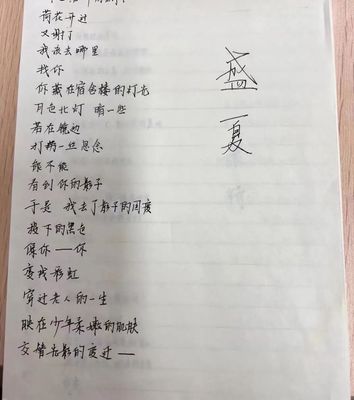 荷花开过
又谢了
我该去哪里
找你
你藏在宿舍楼的灯光
月色比灯 暗一些
若在镜边
灯稍一丝思念
能不能
看到你的影子
于是 我去了影子的国度
投下的黑色
像你——你
变成彩虹
穿过老人的一生
映在少年柔嫩的肌肤
交替光影的变迁——
盛
夏